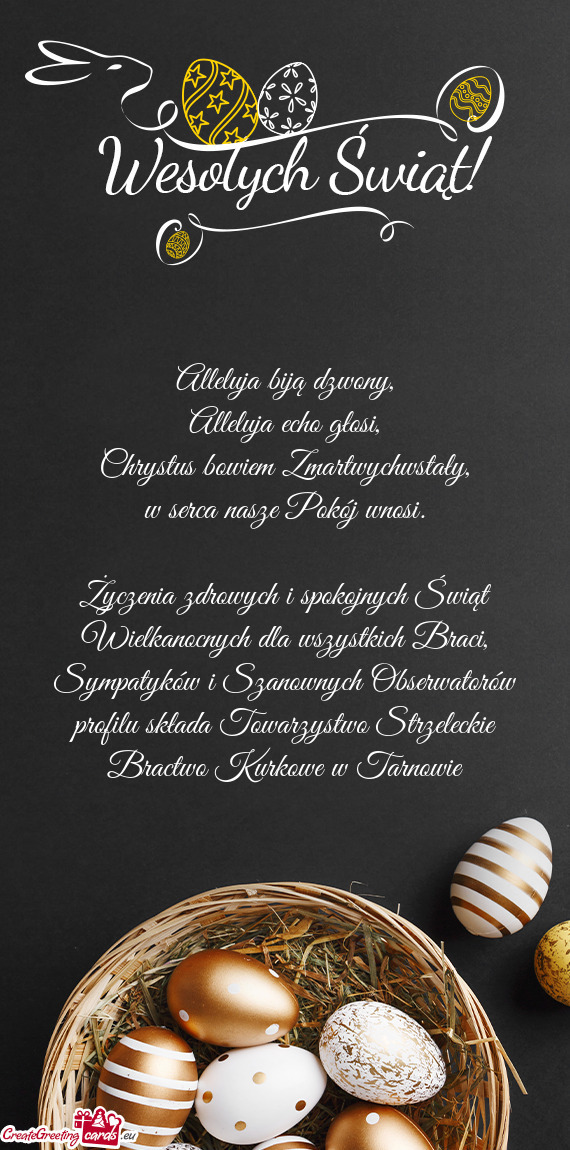 Wesołych Świąt!
Alleluja biją dzwony,
Alleluja echo głosi,
Chrystus bowiem Zmartwychwstały,
w serca nasze Pokój wnosi.
Życzenia zdrowych i spokojnych Świąt
Wielkanocnych dla wszystkich Braci,
Sympatyków i Szanownych Obserwatorów
profilu składa Towarzystwo Strzeleckie
Bractwo Kurkowe w Tarnowie
CreateGreeting cards .eu